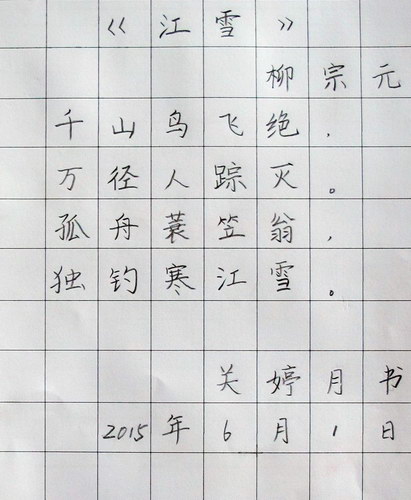 《江雪》
柳宗元
千山鸟飞绝，
万径人踪灭。
孤舟蓑笠翁，
独钓寒江雪。
关婷月书
2015年6月1日